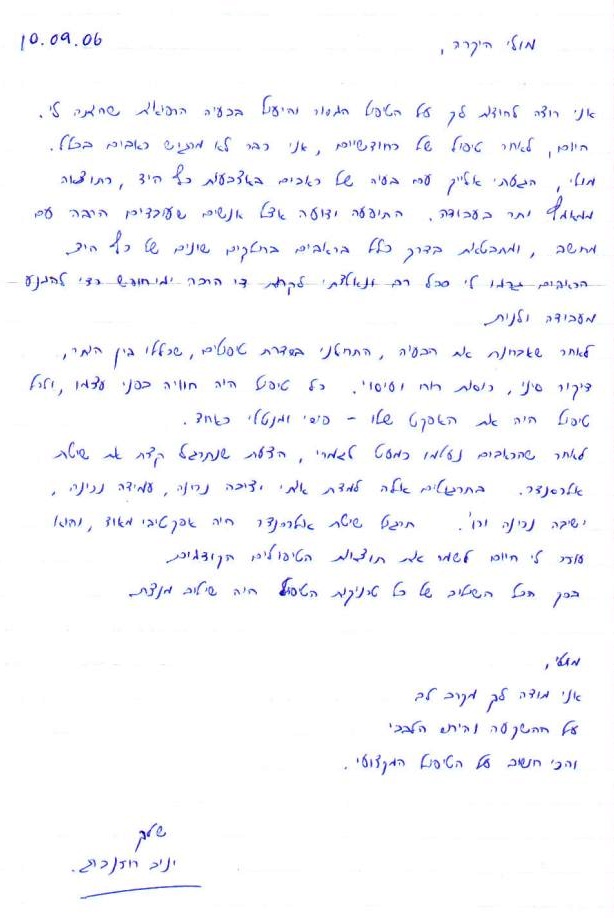 10.09.06
מולי היקרה,
אני רוצה להודות לך על הטיפול המסור והיעיל בבעיה הרפואית שהיתה לי.
היום, לאחר טיפול של כחודשיים, אני כבר לא מרגיש כאבים בכלל.
מולי, הגעתי אלייך עם בעיה של כאבים באצבעות כף היד, כתוצאה
ממאמץ יתר בעבודה. התופעה ידועה אצל אנשים שעובדים הרבה עם
מחשב, ומתבטאת בדרך כלל בכאבים בחלקים שונים של כף היד.
הכאבים גרמו לי סבל רב ונאלצתי לקחת די הרבה ימי חופש כדי להמנע
מעבודה ולנוח.
לאחר שאבחנת את הבעיה, התחלנו בסדרת טיפולים, שכללו בין היתר,
דיקור סיני, כוסות רוח ועיסוי. כל טיפול היה חוויה בפני עצמו, ולכל
טיפול היה את האפקט שלו - פיסי ומנטלי כאחד.
לאחר שהכאבים נעלמו כמעט לגמרי, הצעת שנתרגל קצת את שיטת
אלכסנדר. בתרגולים אלה למדת אותי יציבה נכונה, עמידה נכונה,
ישיבה נכונה וכו'. תרגול שיטת אלכסנדר היה אפקטיבי מאוד, והוא
עוזר לי היום לשמר את תוצאות הטיפולים הקודמים.
בסך הכל השילוב של כל טכניקות הטיפול היה שילוב מנצח.
מולי,
אני מודה לך מקרב לב
על ההשקעה והיחס הלבבי
והכי חשוב על הטיפול המקצועי.
שלך
יניב רוזנברג.